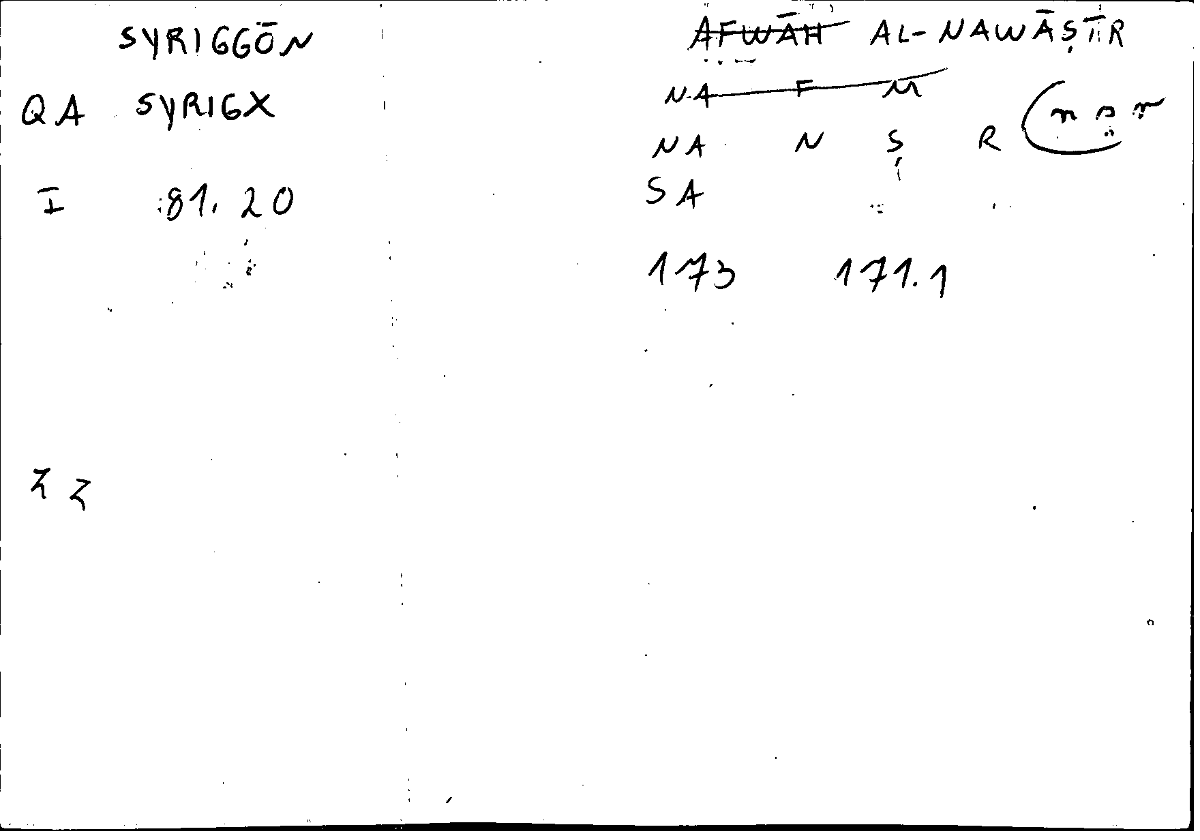 SYRIGGŌN ~~AFWĀH~~ AL-NAWĀṢĪR
QA SYRIGX ~~NA F M~~
NA N Ṣ R (n ṣ r
I 81.20 SA
173 171.1